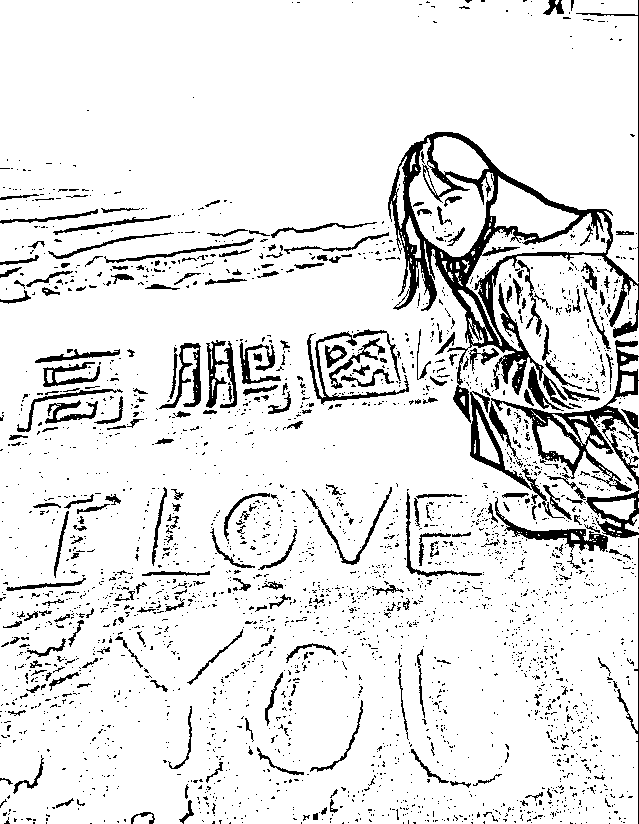 高鹏
I LOVE
YOU